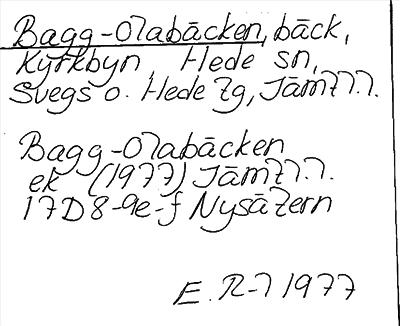 Bagg-Olabäcken, bäck,
Kyrkbyn, Hede sn,
Svegs o. Hede tg, Jämtl.
Bagg-Olabäcken
ek (1977) Jämtl.
17D 8-9e-f Nysätern
E. R-l 1977